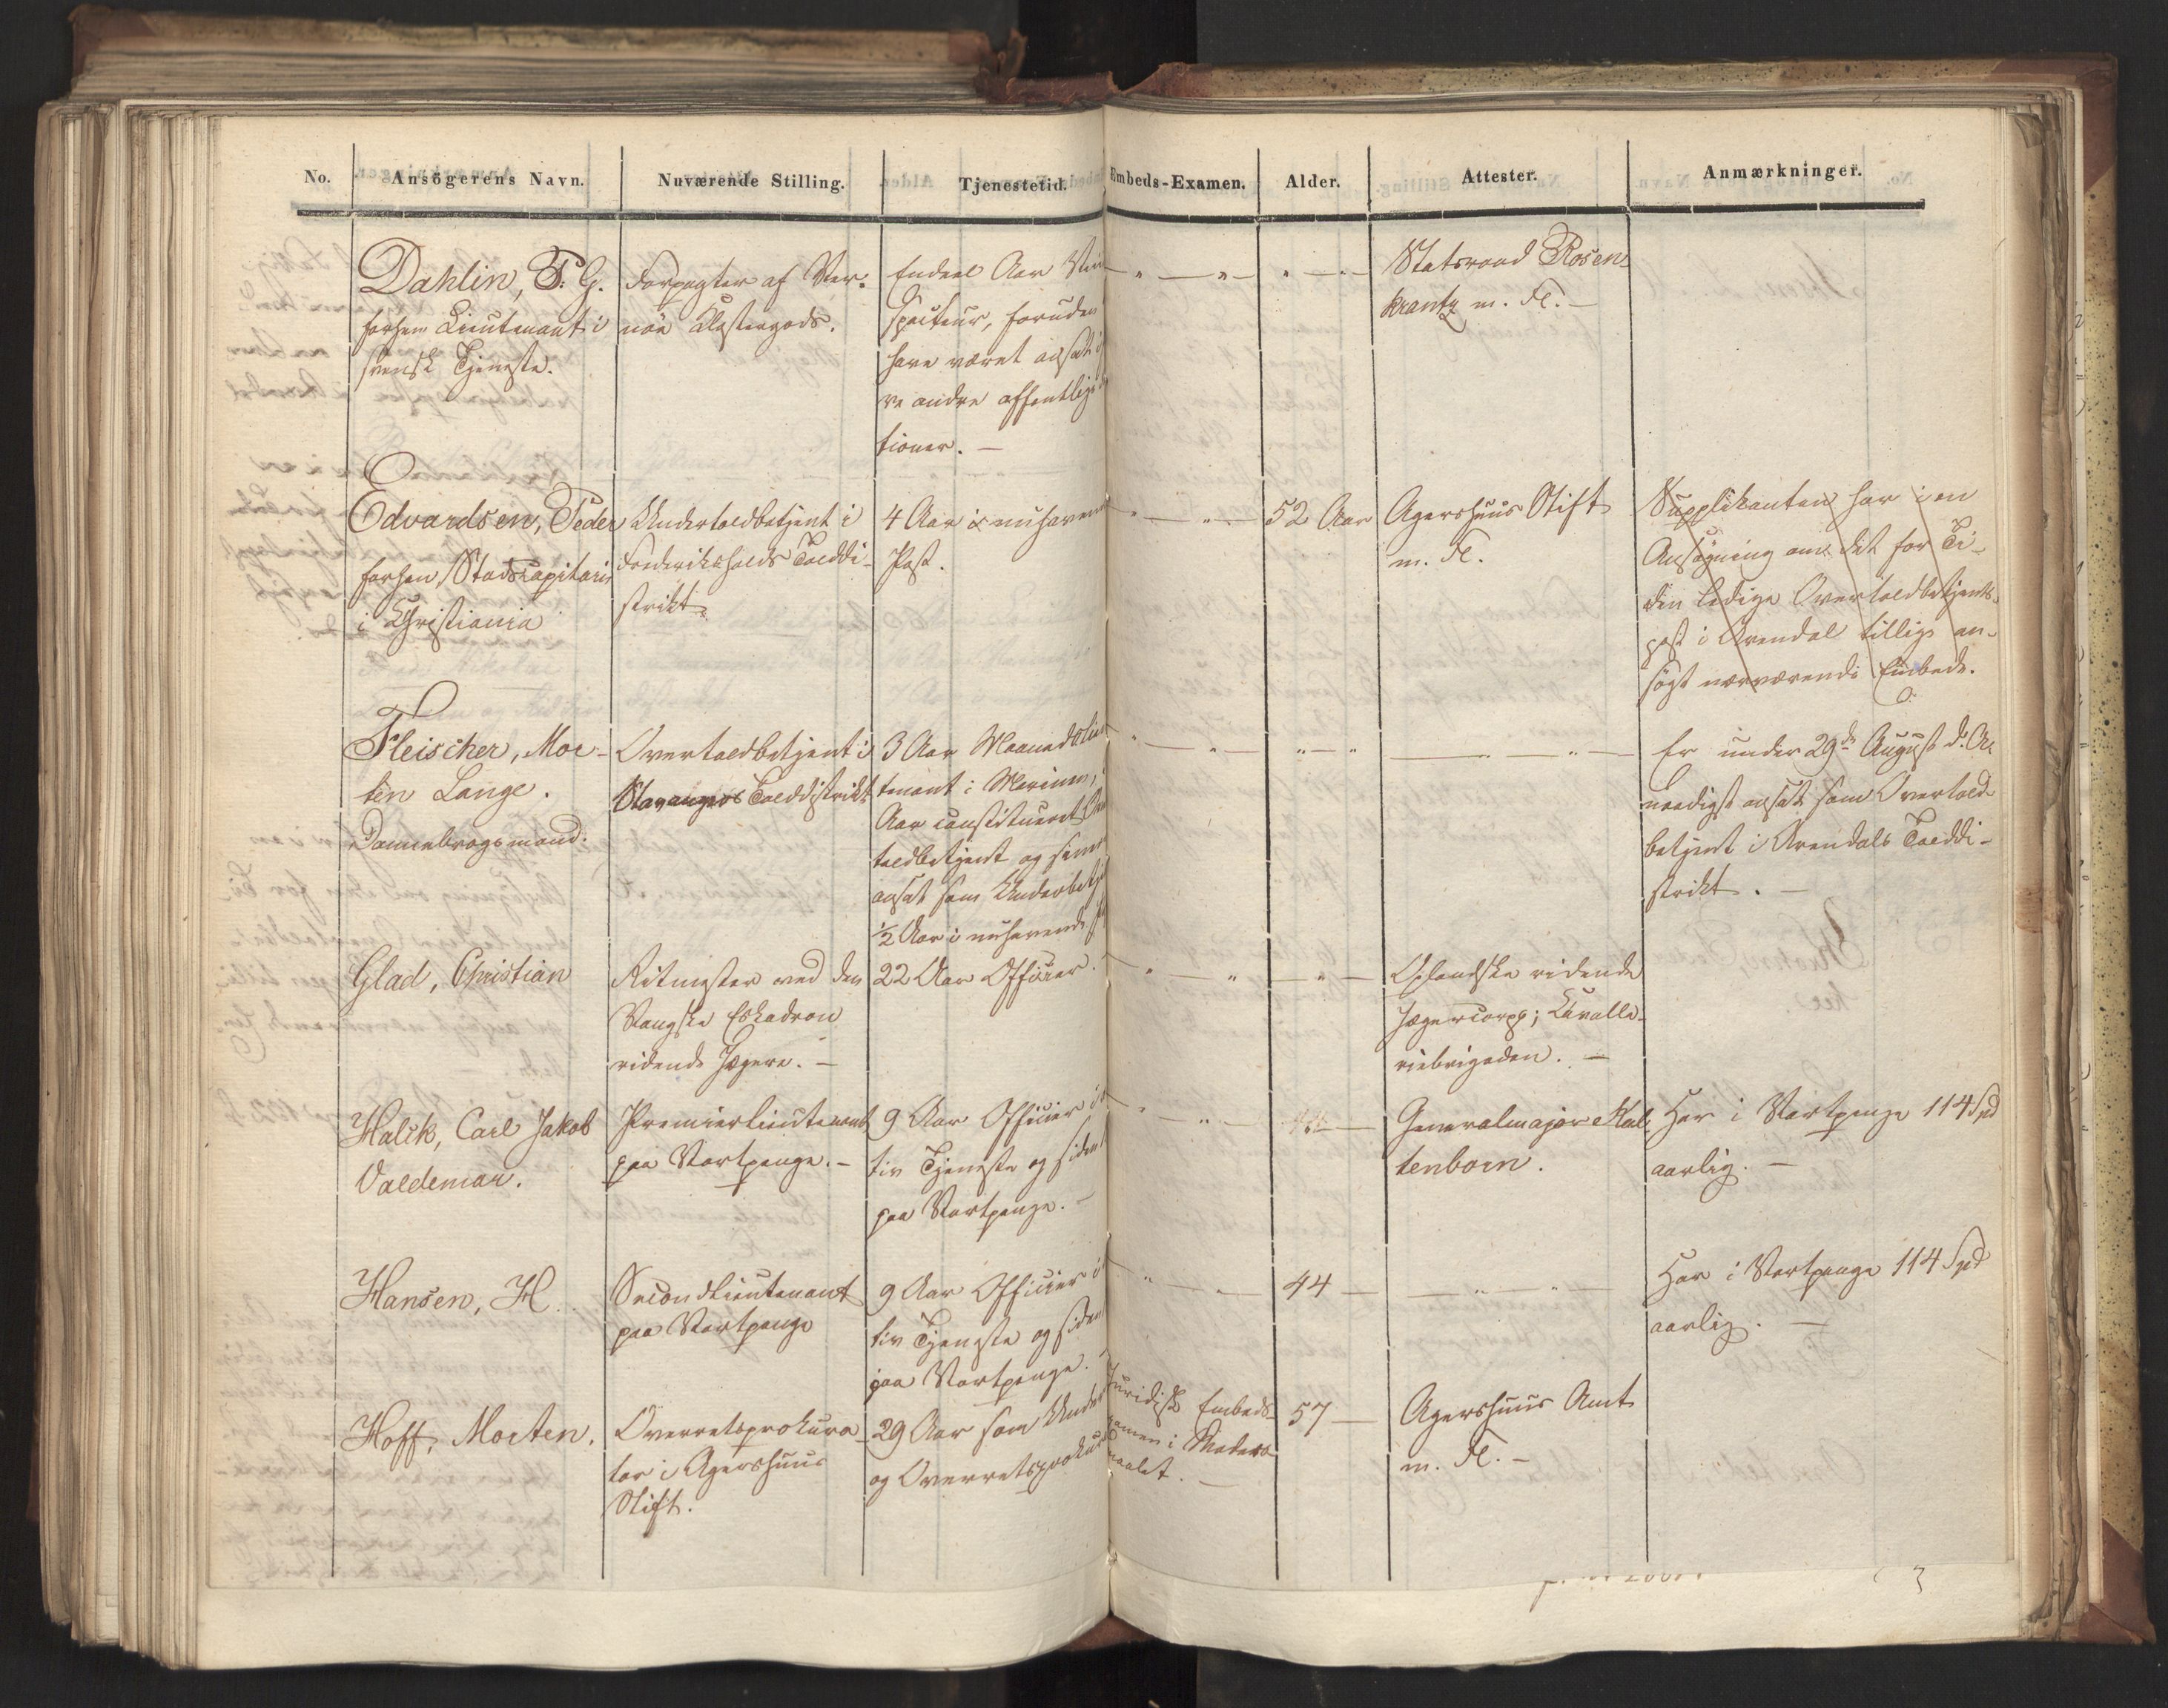 No.
Ansögerens Navn.
Nuværende Stilling.
Tjenestetid.
Embeds-Examen.
Alder.
Attester.
Anmærkninger.
Dahlin, P. G.
forhen Lieutenant i
svensk Tjeneste.
Forpagter af Ver-
nöe Klostergods.
Endeel Aar
specteur, foruden
have været ansat i
re andre offentlige
tioner. —
Statsraad Rosen-
krantz m. Fl. —
Edvardsen, Peder
forhen Stadscapitain
i Christiania
Undertoldbetjent i
Frederikshalds Tolddi-
strikt.
4 Aar i nuhavende
Post.
52 Aar
Agershuus Stift
m. Fl.
Supplikanten har i en
Ansögning om det for Ti-
den ledige Overtoldbetjents-
post i Arendal tillige an-
sögt nærværende Embede.
Fleischer, Mor-
ten Lange.
Dannebrogsmand.
Overtoldbetjent i
Stavangers Tolddistrikt
3 Aar Maanedslieu
tenant i Marinen,
Aar constitueret
toldbetjent og senere
ansat som Underbetje
½ Aar i nuhavende
Er under 29de August d. A.
naadigst ansat som Overtold-
betjent i Arendals Tolddi-
strikt. —
Glad, Christian
Ritmester ved den
Vangske Eskadron
ridende Jægere. —
22 Aar Officier.
Oplandske ridende
Jægercorps; Kavalle-
riebrigaden. —
Halck, Carl Jakob
Valdemar.
Premierlieutenant
paa Vartpenge. —
9 Aar Officier i
tiv Tjeneste og siden
paa Vartpenge. —
Generalmajor Kal-
tenborn.
Har i Vartpenge 114 Spd
aarlig. —
Hansen, H.
Secondlieutenant
paa Vartpenge
9 Aar Officier i
tiv Tjeneste og siden
paa Vartpenge.
44
Har i Vartpenge 114 Spd
aarlig. —
Hoff, Morten.
Overretsprokura-
tor i Agershuus
Stift.
29 Aar som Under
og Overretsprokur
Juridisk Embeds-
xamen i Moders-
maalet. —
57
Agershuus Amt
m. Fl. —